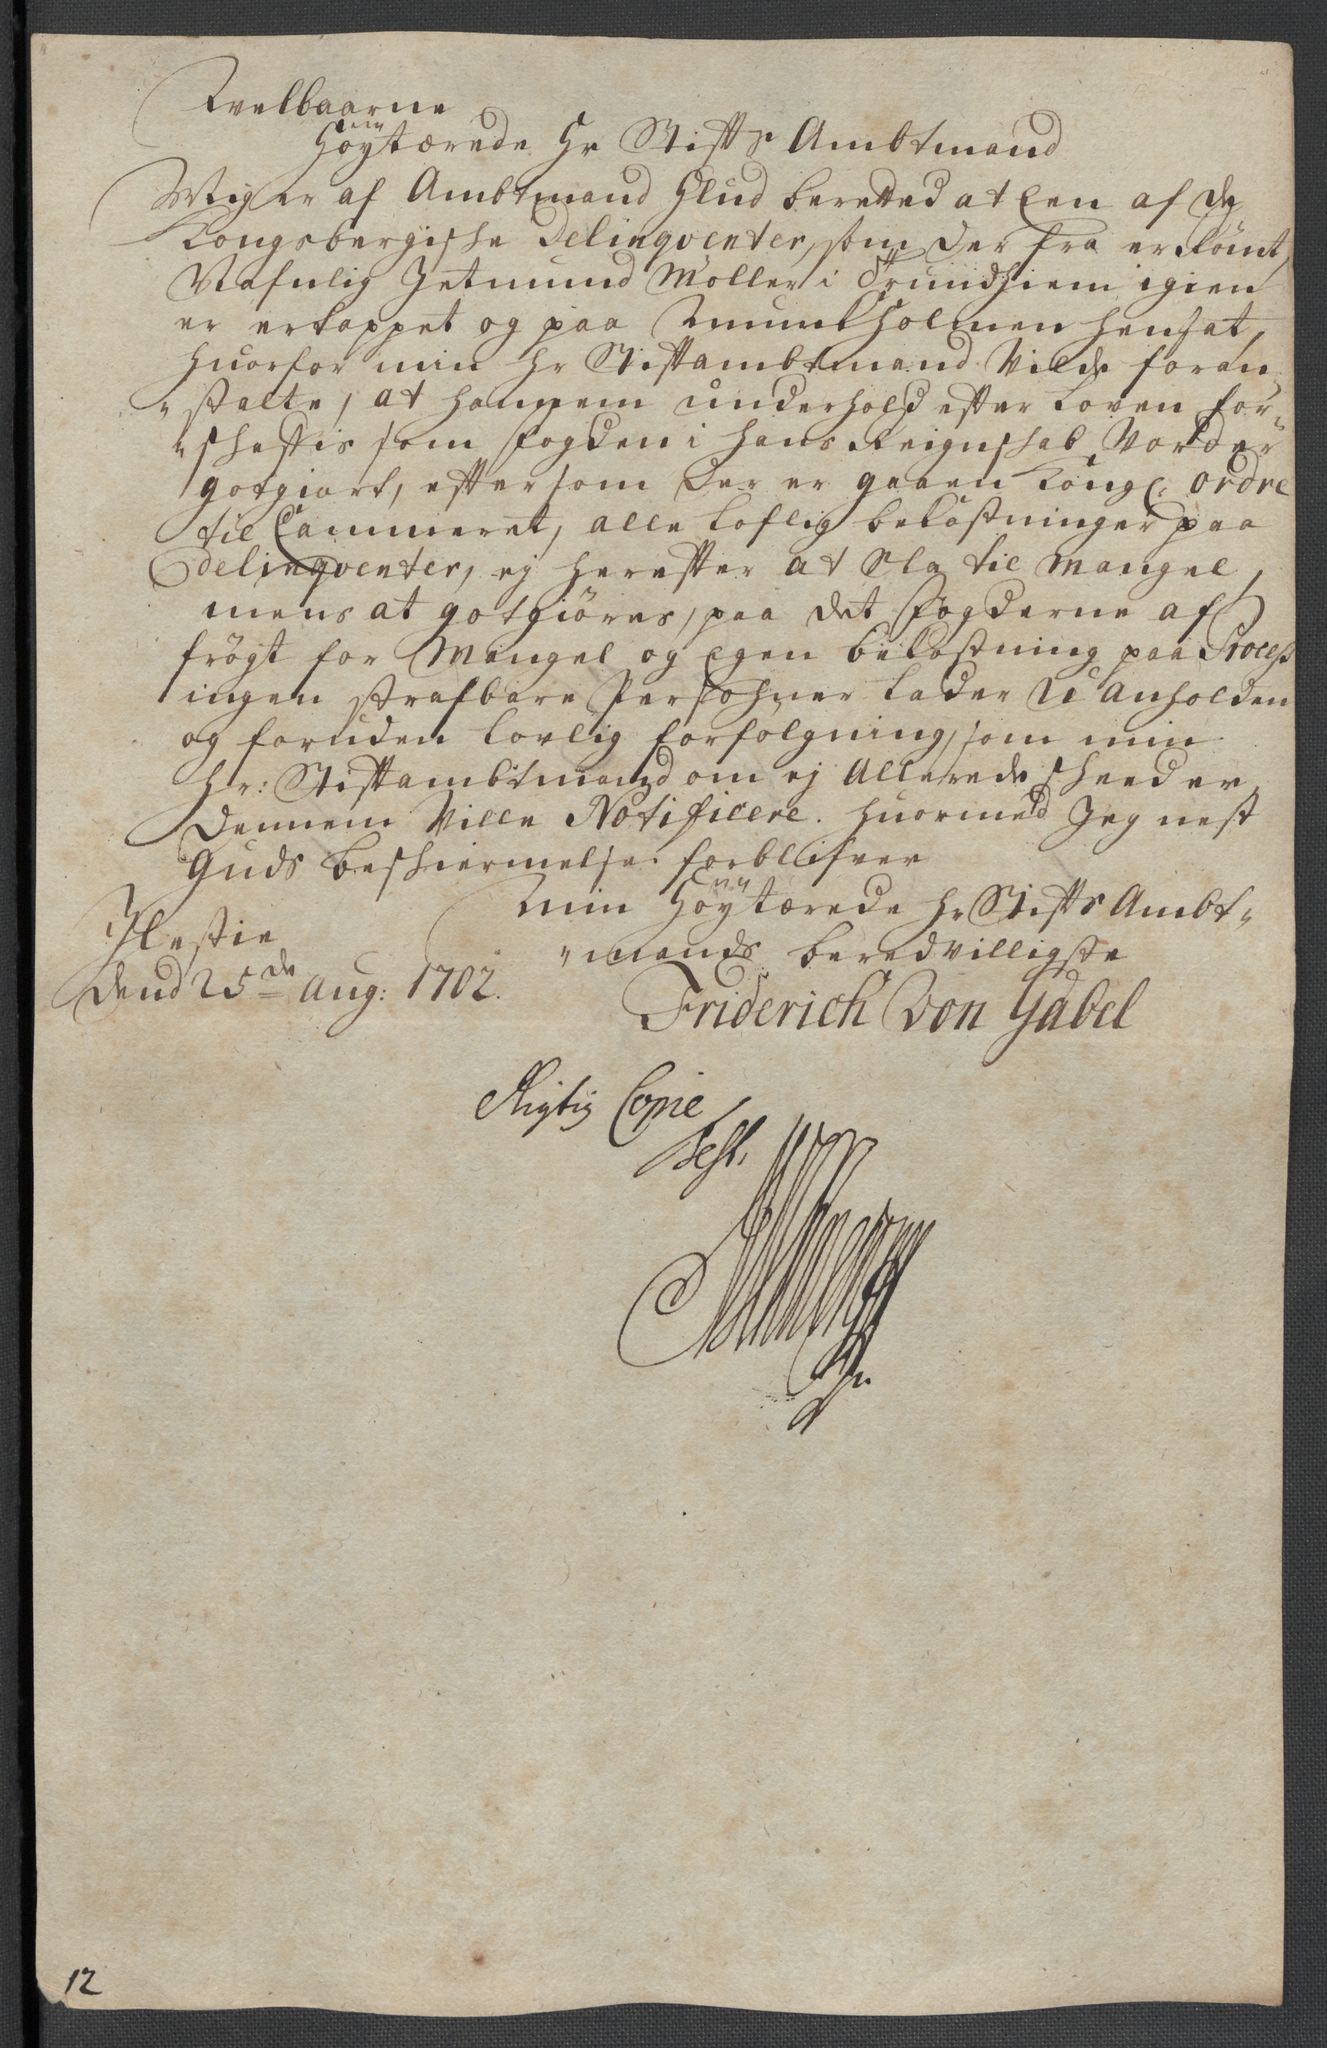 Welbaarne
Höytærede Hr Stiffts Ambtmand
Mig er af Ambtmand Glud beretted at Een af de
Kongsbergishe Delinqventer, som der fra er Kömt,
Nafnlig Jetmund Moller i Trundhiem igien
er ertappet og paa Munkholmen hensat,
huorfor min Hr Stiftambtmand Vilde foran„
„stalte, at hannem underhold efter Loven for„
„shaffis som fogden i hans Reignshab Vorder
gotgiort, efftersom der er gaaen Kongl: Ordre
til Cammeret, alle Loflig bekostninger paa
Delinqventer, ej herefter at Sla til Mangel,
mens at gotgiöres, paa det fogderne af
frögt for Mangel og Egen bekostning paa Process
ingen strafbare Persohner lader U anholden
og foruden Lovlig forfölgning, som min
Hr: Stiftambtmand om ej Allerede sheed er
dennem Ville Notificere. Huormed Jeg nest
Guds beshiermelse forblifver
Min Höytærede Hr Stiffts Ambt„
„mands beredvilligste
Friderich Von Gabel
Dend 25de Aug: 1702.
Rigtig Copie
Test.
12